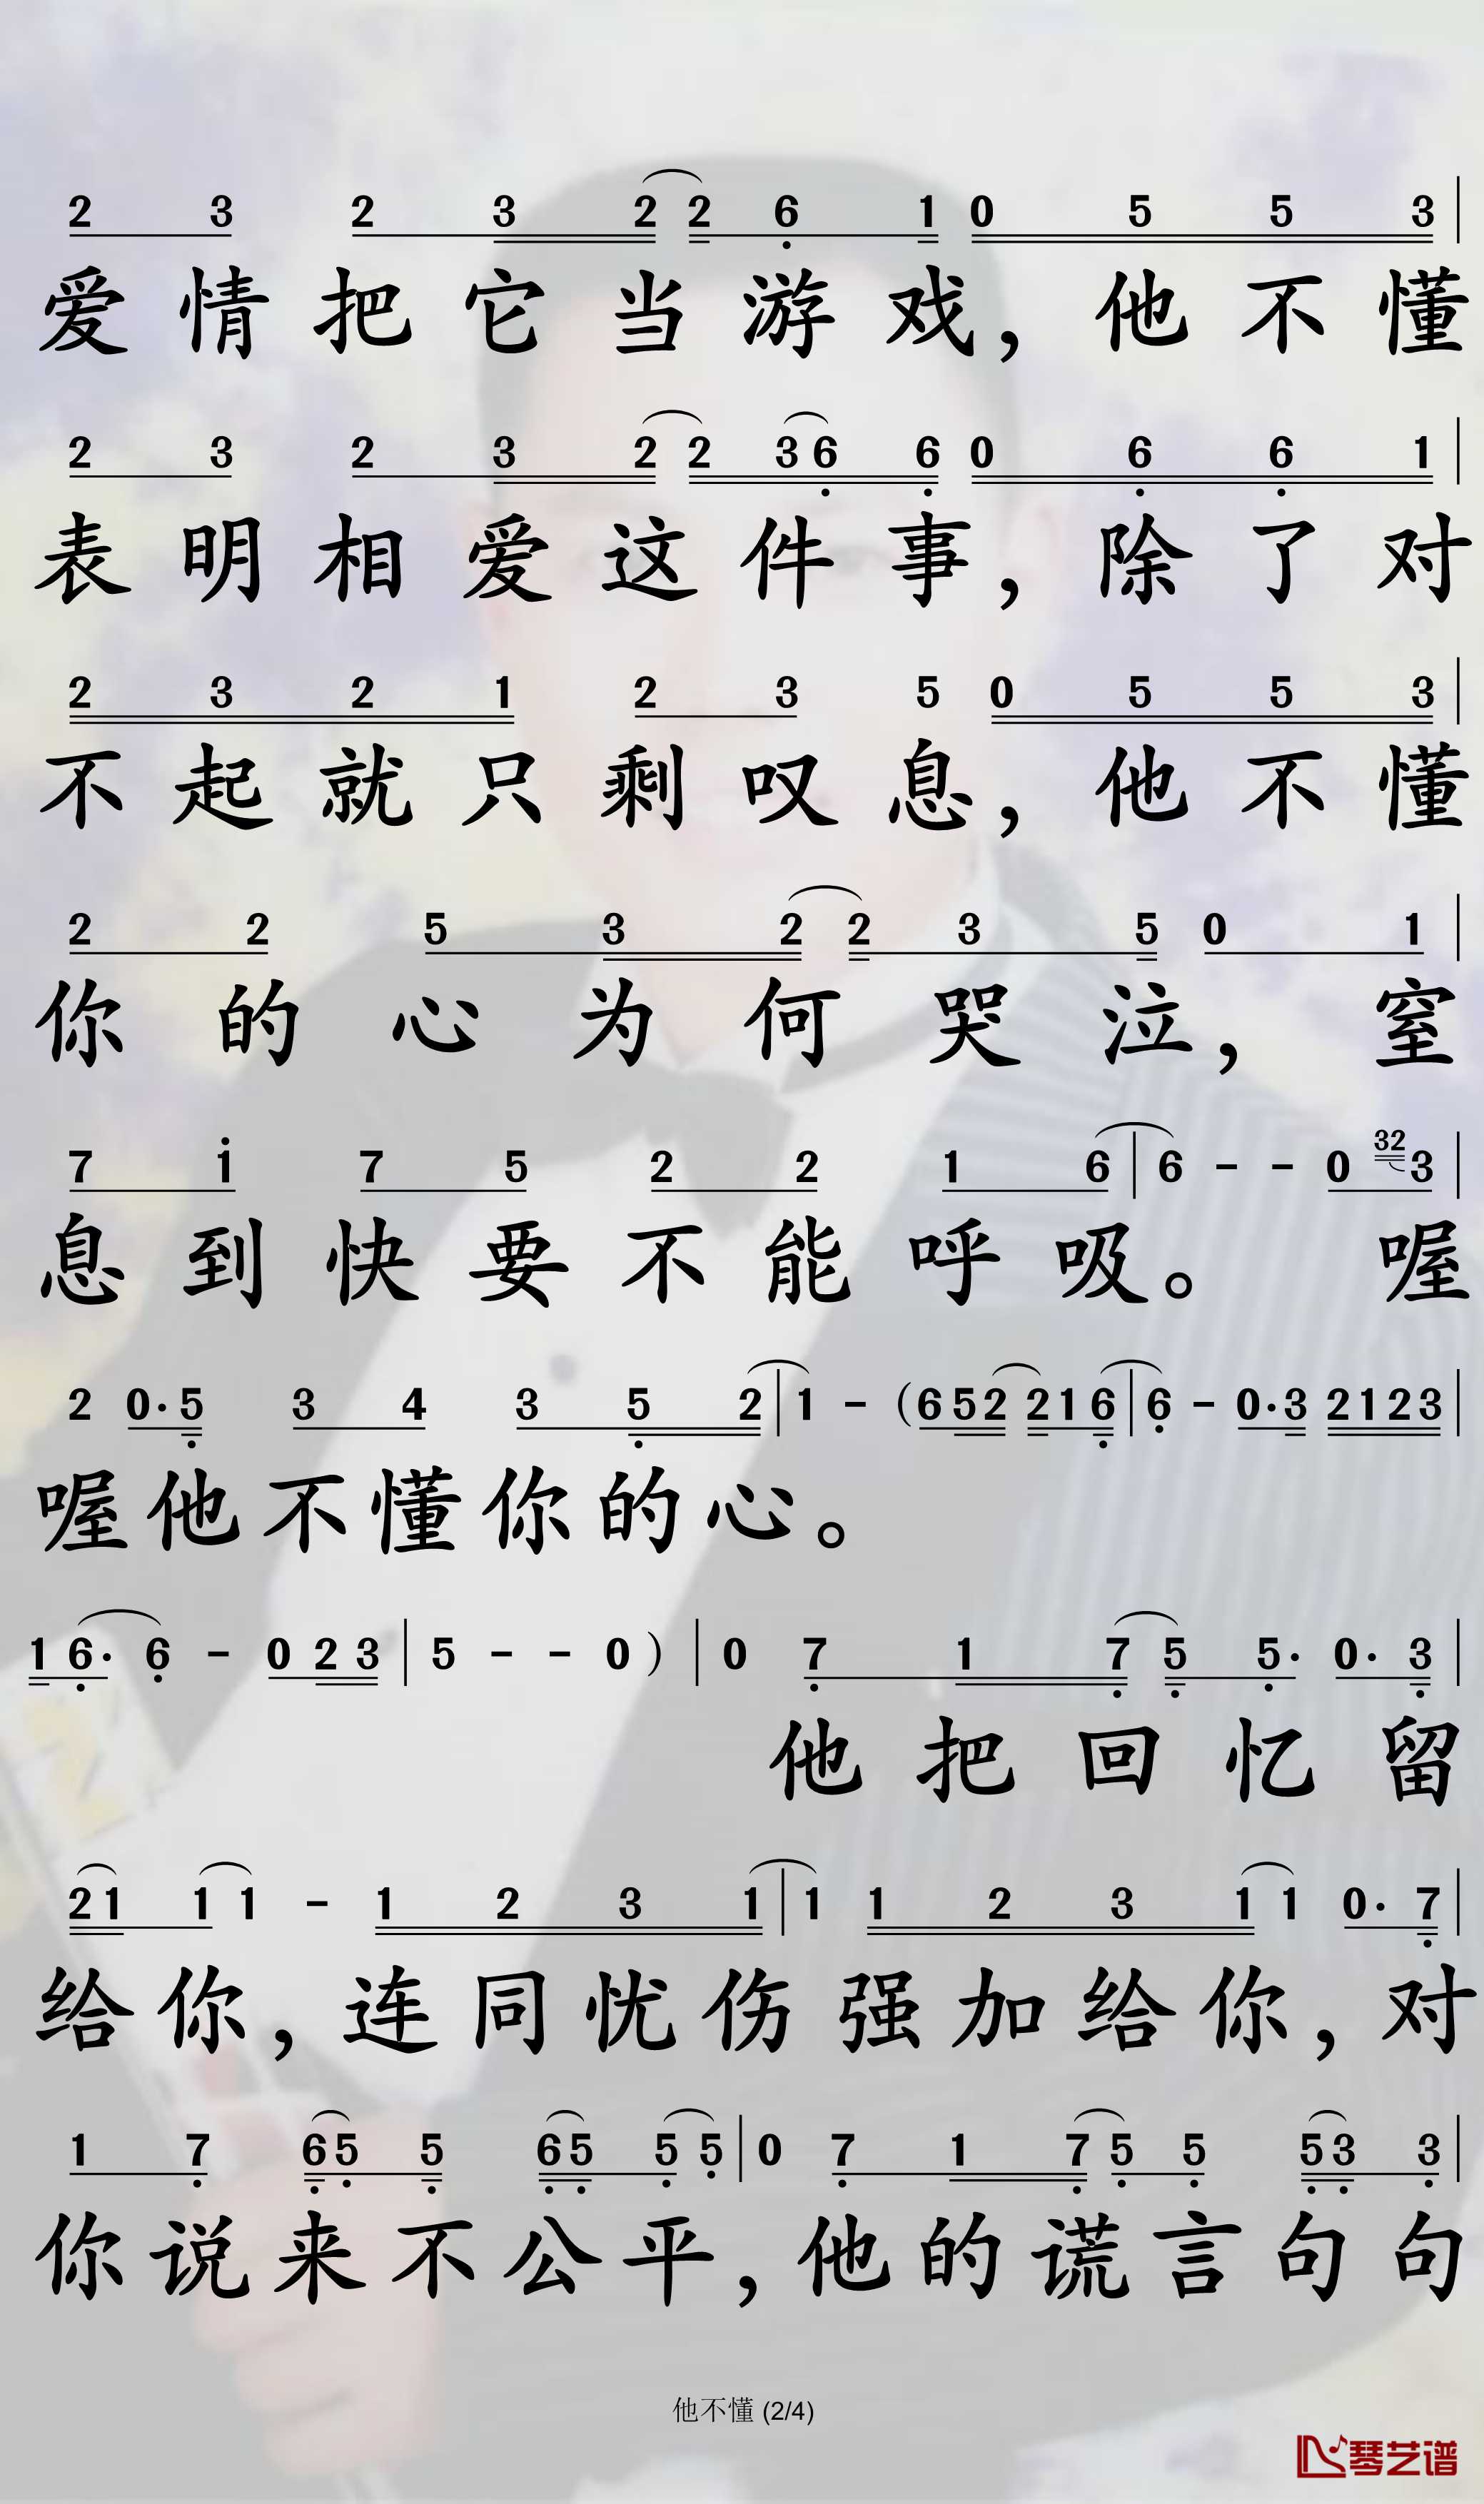 2 3 2 3 2 2 6 1 0 5 5 3
爱情把它当游戏，他不懂
2 3 2 3 2 2 3 6 6 0 6 6 1
表明相爱这件事，除了对
2 3 2 1 2 3 5 0 5 5 3
不起就只剩叹息，他不懂
2 2 5 3 2 2 3 5 0 1
你的心为何哭泣，窒
7 1 7 5 2 2 1 6 | 6 - - 0 32 3
息到快要不能呼吸。 喔
2 0·5 3 4 3 5 2 | 1 - (6 5 2 2 1 6 | 6 - 0·3 2 1 2 3
喔他不懂你的心。
1 6· 6 - 0 2 3 | 5 - - 0 ) | 0 7 1 7 5 5· 0· 3
他把回忆留
2 1 1 1 - 1 2 3 1 | 1 1 2 3 1 1 0· 7
给你，连同忧伤强加给你，对
1 7 6 5 5 6 5 5 5 | 0 7 1 7 5 5 5 3 3
你说来不公平，他的谎言句句
他不懂 (2/4)
琴艺谱